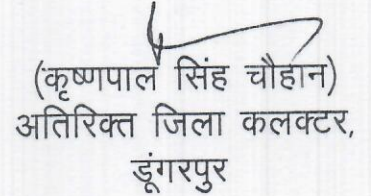 (कृष्णपाल सिंह चौहान)
अतिरिक्त जिला कलक्टर,
डूंगरपुर